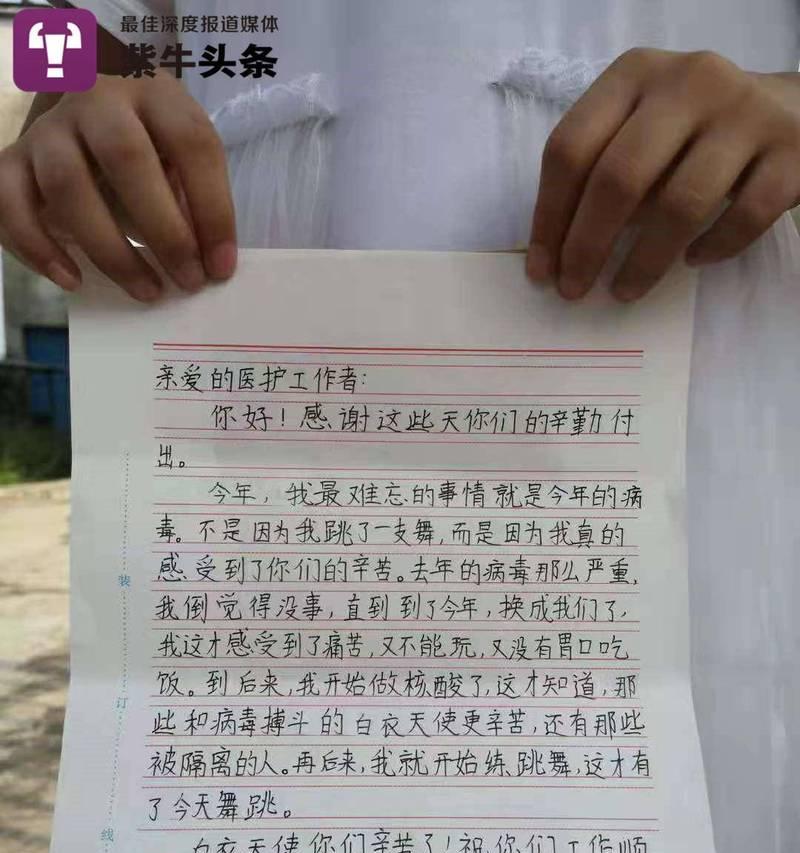 最佳深度报道媒体
紫牛头条
亲爱的医护工作者:
你好!感谢这些天你们的辛勤付
出。
今年,我最难忘的事情就是今年的病
毒。不是因为我跳了一支舞,而是因为我真的
感受到了你们的辛苦。去年的病毒那么严重,
我倒觉得没事,直到到了今年,换成我们了,
我这才感受到了痛苦,又不能玩,又没有胃口吃
饭。到后来,我开始做核酸了,这才知道,那
些和病毒搏斗的白衣天使更辛苦,还有那些
被隔离的人。再后来,我就开始练跳舞,这才有
了今天舞跳。
白衣天使你们辛苦了!祝你们工作顺
装
订
线